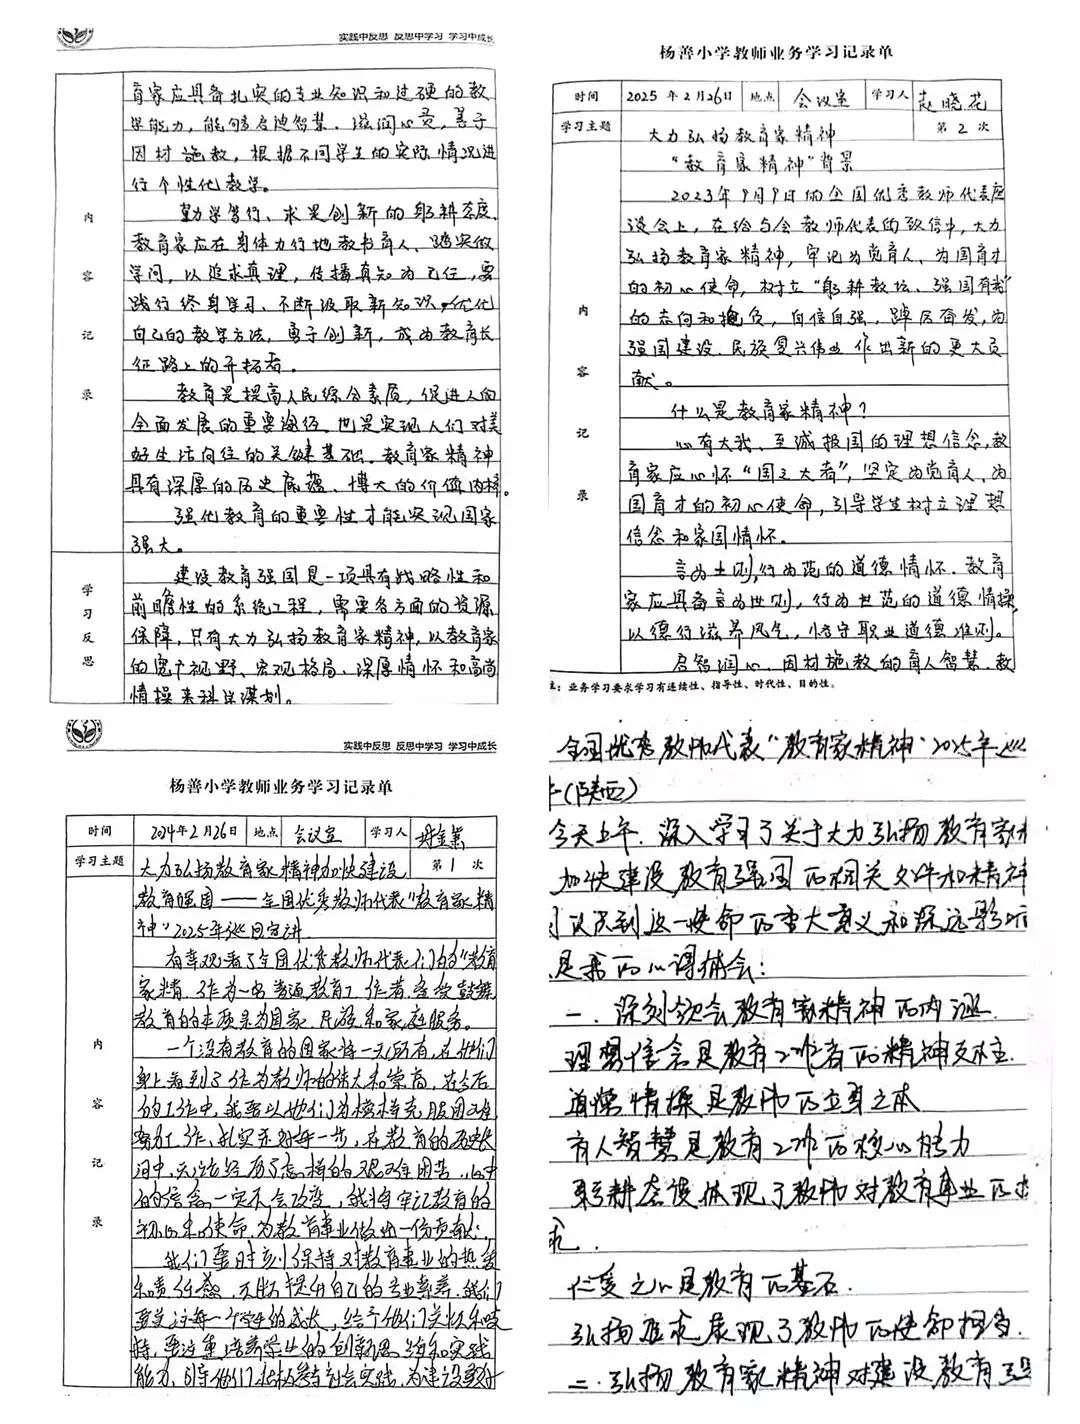 实践中反思 反思中学习 学习中成长
育家应具备扎实的专业知识和过硬的教
学能力,能够启迪智慧、滋润心灵,善于
因材施教,根据不同学生的实际情况进
行个性化教学。
勤学笃行、求是创新的躬耕态度。
教育家应在身体力行地教书育人、踏实做
学问,以追求真理,传播真知为己任,要
践行终身学习、不断汲取新知识,优化
自己的教学方法,勇于创新,成为教育长
征路上的开拓者。
教育是提高人民综合素质,促进人的
全面发展的重要途径,也是实现人们对美
好生活向往的关键基础。教育家精神
具有深厚的历史底蕴、博大的价值内核。
强化教育的重要性才能实现国家
强大。
内容记录
建设教育强国是一项具有战略性和
前瞻性的系统工程,需要各方面的资源
保障,只有大力弘扬教育家精神,以教育家
的宽广视野、宏观格局、深厚情怀和高尚
情操来科学谋划。
学习反思
杨善小学教师业务学习记录单
时间 2025年2月26日 地点 会议室 学习人 赵晓花
学习主题 大力弘扬教育家精神 第2次
“教育家精神”背景
2023年9月9日的全国优秀教师代表座
谈会上,在给与会教师代表的致信中,大力
弘扬教育家精神,牢记为党育人、为国育才
的初心使命,树立“躬耕教坛、强国有我”
的志向和抱负,自信自强,踔厉奋发,为
强国建设、民族复兴伟业作出新的更大贡
献。
什么是教育家精神?
心有大我、至诚报国的理想信念,教
育家应心怀“国之大者”,坚定为党育人、为
国育才的初心使命,引导学生树立理想
信念和家国情怀。
言为士则,行为范的道德情怀。教育
家应具备言为世则,行为世范的道德情操,
以德行滋养风气,恪守职业道德准则。
启智润心、因材施教的育人智慧,教
内容记录
注:业务学习要求学习有连续性、指导性、时代性、目的性。
实践中反思 反思中学习 学习中成长
杨善小学教师业务学习记录单
时间 2024年2月26日 地点 会议室 学习人
学习主题 大力弘扬教育家精神加快建设 第1次
教育强国——全国优秀教师代表“教育家精
神”2025年巡回宣讲
有幸观看了全国优秀教师代表们的“教育
家精神,作为一名普通教育工作者,备受鼓舞
教育的本质是为国家、民族和家庭服务。
一个没有教育的国家将一无所有,在他们
身上看到了作为教师的伟大和崇高,在今后
的工作中,我要以他们为榜样克服困难
努力工作,扎实走好每一步,在教育的历史长
河中,无论经历了怎样的艰难困苦,心中
的信念一定不会改变,我将牢记教育的
初心和使命,为教育事业做出一份贡献;
我们要时刻保持对教育事业的热爱
和责任感,不断提升自己的专业素养,我们
要关注每一个学生的成长,给予他们关怀和支
持,要注重培养学生的创新思维和实践
能力,引导他们积极参与社会实践,为建设教
内容记录
全国优秀教师代表“教育家精神”2025年巡
(陕西)
今天上午,深入学习了关于大力弘扬教育家精
加快建设教育强国的相关文件和精神
认识到这一使命的重大意义和深远影响
是我的心得体会:
一.深刻领会教育家精神的内涵.
理想信念是教育工作者的精神支柱.
道德情操是教师的立身之本
育人智慧是教育工作的核心能力
躬耕态度体现了教师对教育事业的追
求.
仁爱之心是教育的基石.
弘扬追求展现了教师的使命担当.
二.弘扬教育家精神对建设教育强